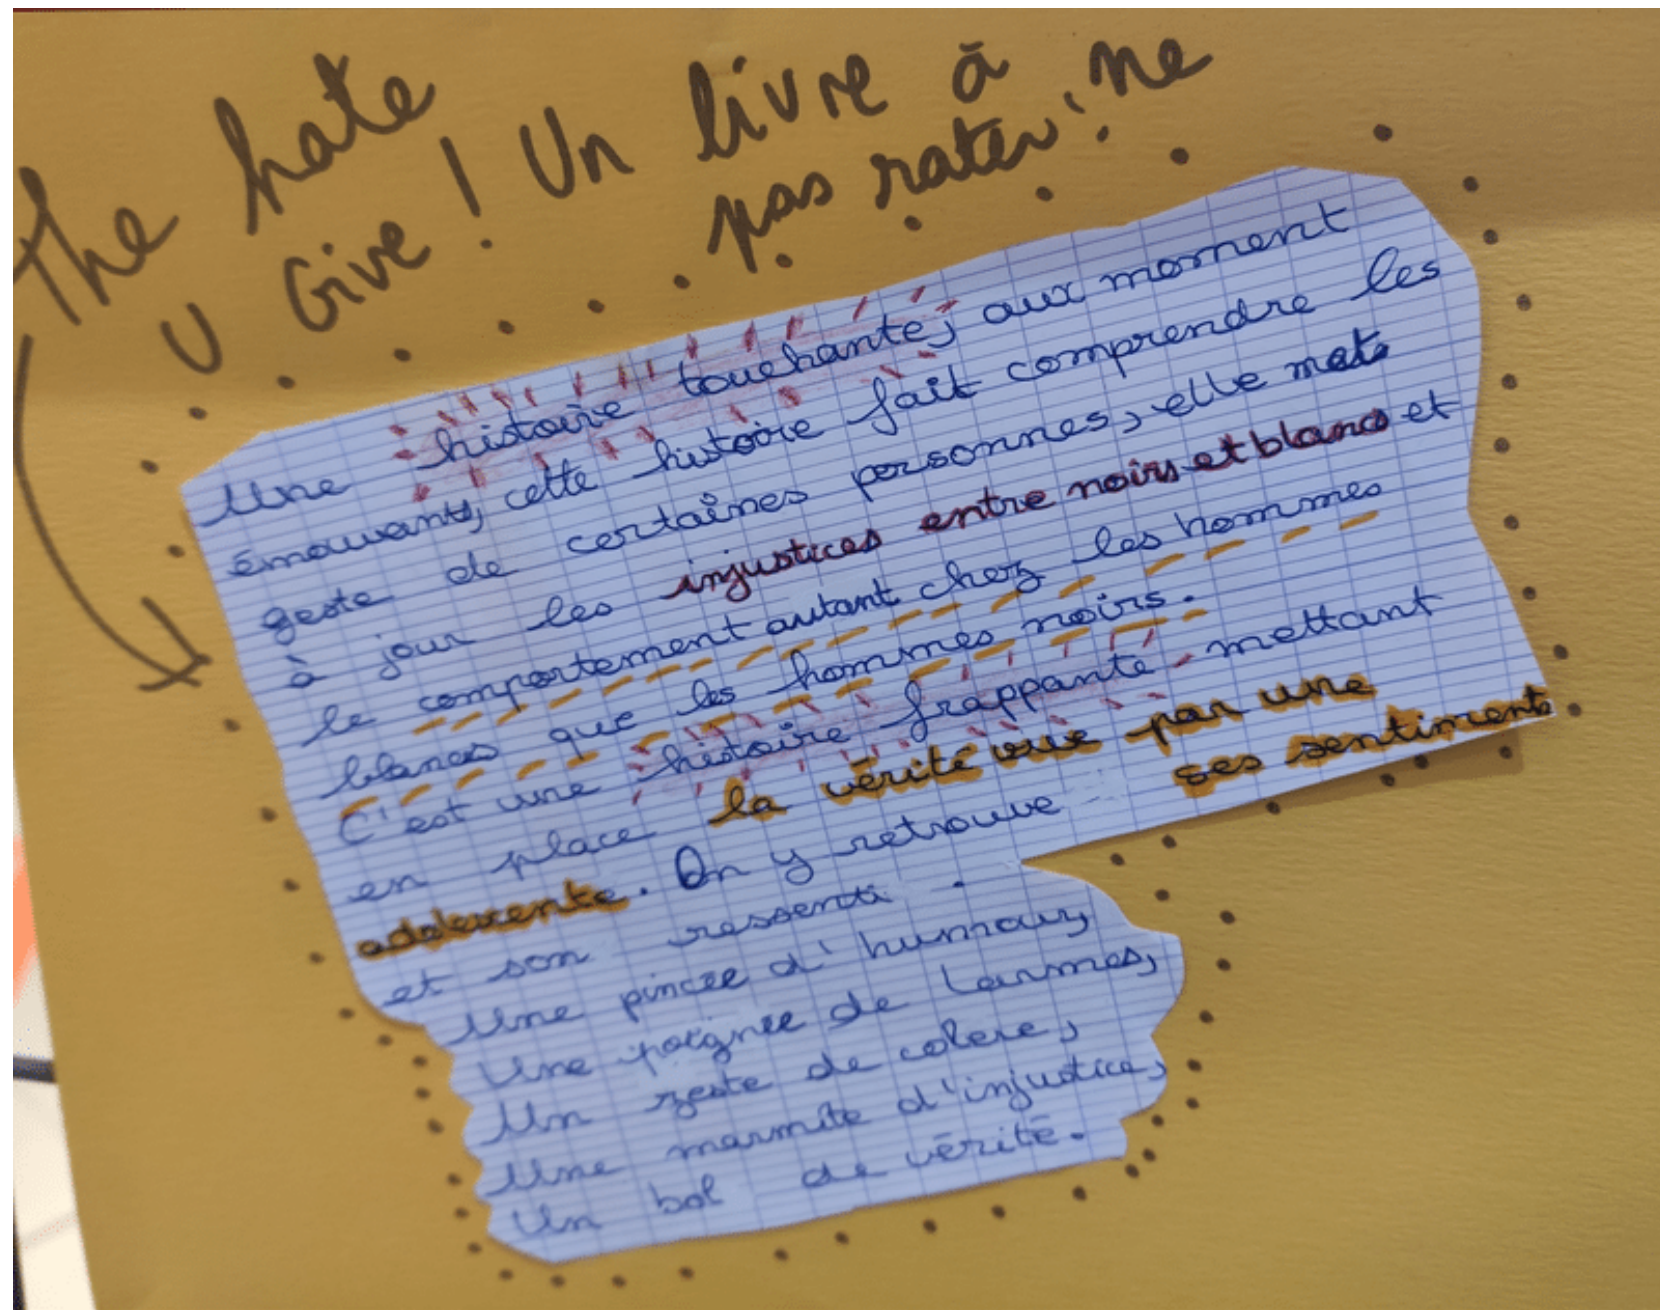 The hate
U Give ! Un livre à ne
pas rater !
Une histoire touchante, aux moment
émouvants, cette histoire fait comprendre les
geste de certaines personnes, elle mets
à jour les injustices entre noirs et blancs et
le comportement autant chez les hommes
blancs que les hommes noirs.
C'est une histoire frappante mettant
en place la vérité vue par une
adolescente. On y retrouve ses sentiments
et son ressenti.
Une pincée d'humour,
Une poignée de larmes,
Un zeste de colere,
Une marmite d'injustice,
Un bol de vérité.